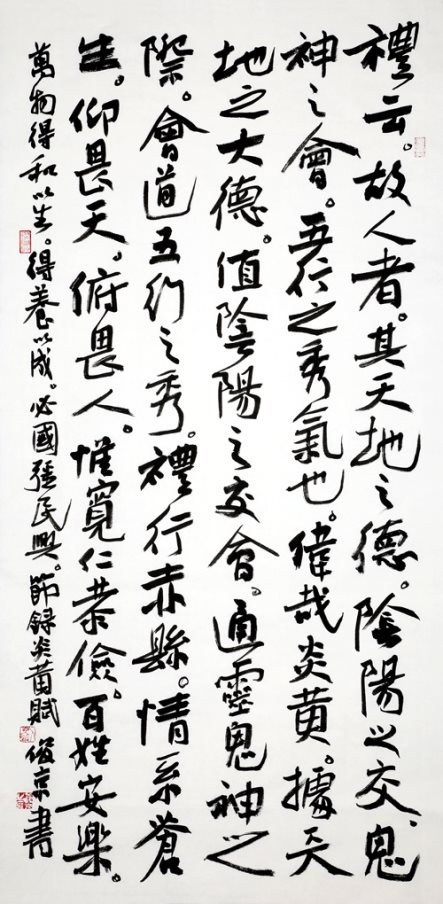 禮云。故人者。其天地之德。陰陽之交。鬼
神之會。五行之秀氣也。偉哉炎黄。據天
地之大德。值陰陽之交會。通靈鬼神之
際。會道五行之秀。禮行赤縣。情系蒼
生。仰畏天。俯畏人。惟寬仁恭儉。百姓安樂。
萬物得和以生。得養以成。必國强民興。節録炎黄賦 俊京書